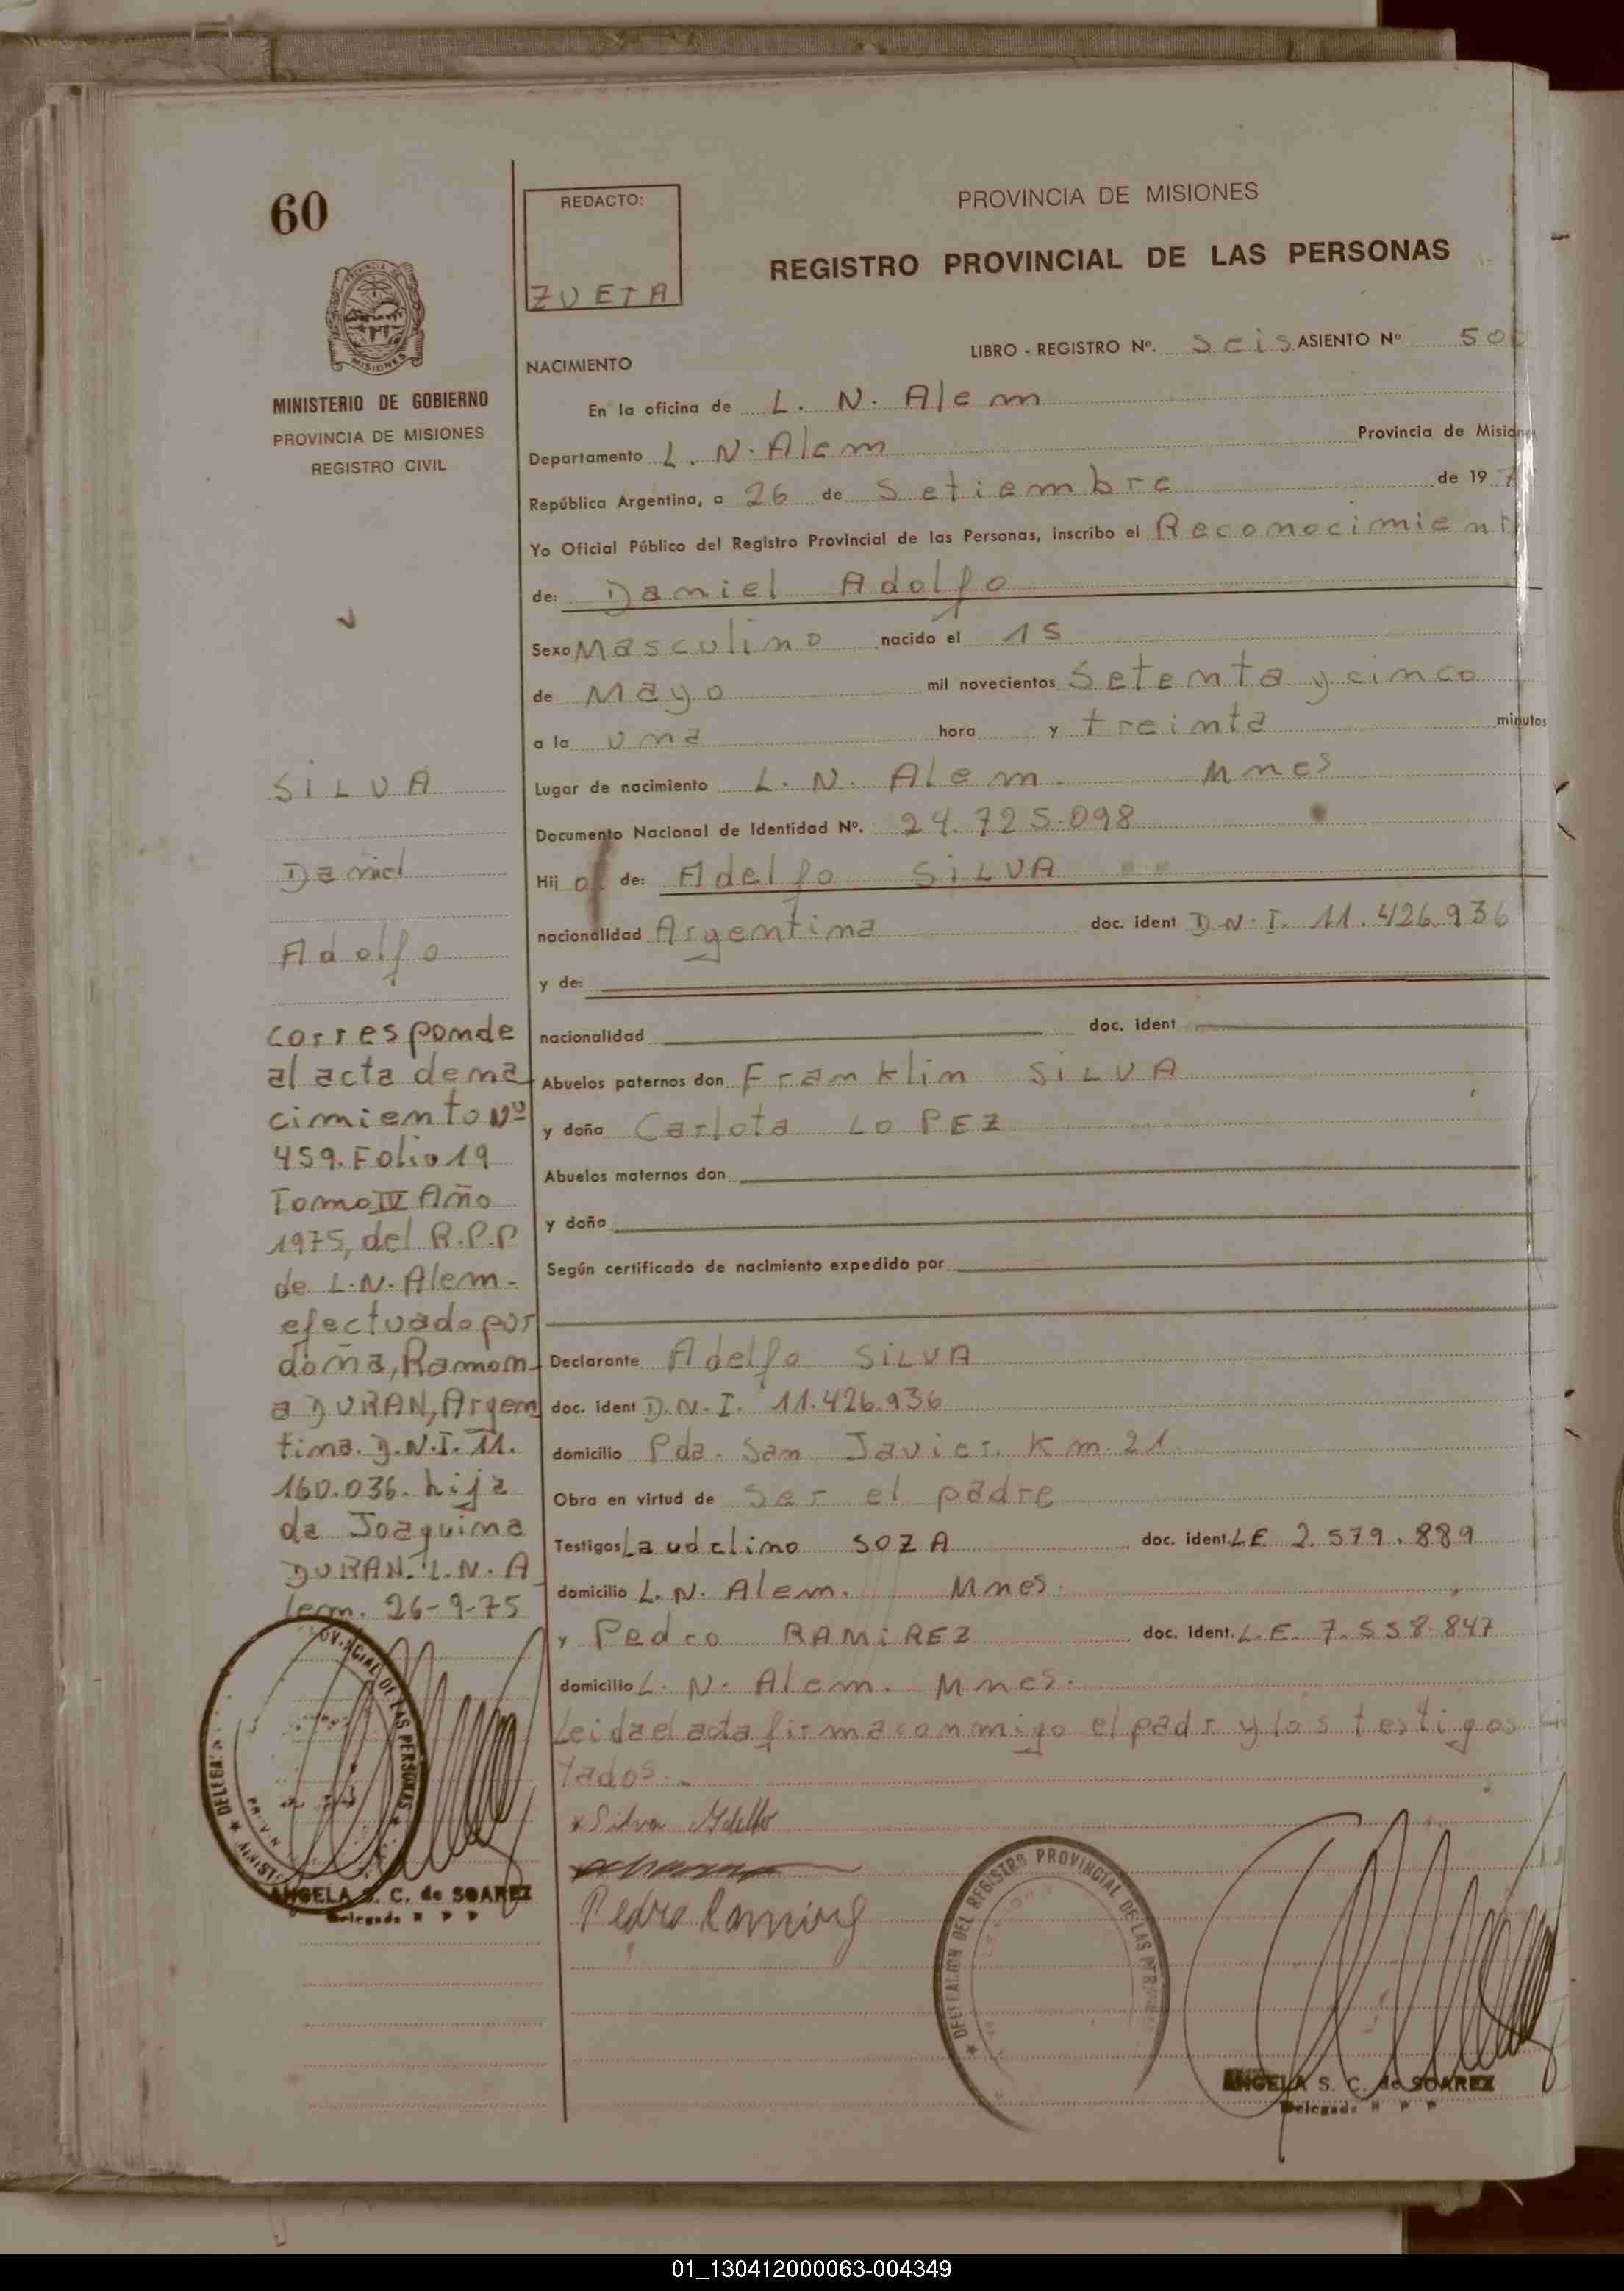 60
REDACTO:
ZUETA
PROVINCIA DE MISIONES
REGISTRO PROVINCIAL DE LAS PERSONAS
MISIONES
MINISTERIO DE GOBIERNO
PROVINCIA DE MISIONES
REGISTRO CIVIL
LIBRO - REGISTRO Nº. Seis ASIENTO Nº 50
NACIMIENTO
En la oficina de L. N. Alem
Departamento L. N. Alem Provincia de Misiones
República Argentina, a 26 de Setiembre de 19 7
Yo Oficial Público del Registro Provincial de las Personas, inscribo el Reconocimient
de: Daniel Adolfo
Sexo Masculino nacido el 15
de Mayo mil novecientos Setenta y cinco
a la una hora y treinta minutos
Lugar de nacimiento L. N. Alem. Mnes
Documento Nacional de Identidad Nº. 24.725.098
Hij o de: Adelfo SILVA
nacionalidad Argentina doc. ident D.N.I. 11.426.936
y de:
nacionalidad doc. ident
Abuelos paternos don Franklin SILVA
y doña Carlota LOPEZ
Abuelos maternos don
y doña
Según certificado de nacimiento expedido por
Declarante Adelfo SILVA
doc. ident D.N.I. 11.426.936
domicilio Pda. San Javier. Km. 21
Obra en virtud de Ser el padre
Testigos Laudelino SOZA doc. ident. LE 2.579.889
domicilio L. N. Alem. Mnes.
y Pedro RAMIREZ doc. ident. L.E. 7.558.847
domicilio L. N. Alem. Mnes.
Leida el acta firma conmigo el padr y los testigos
tados.
SILVA
Daniel
Adolfo
Corresponde
al acta de na
cimiento Nº
459. Folio 19
Tomo IV Año
1975, del R.P.P
de L.N. Alem.
efectuado por
doña, Ramon
a DURAN, Argen
tina. D.N.I. 11.
160.036. hija
de Joaquina
DURAN. L.N. A
lem. 26-9-75
ANGELA S. C. de SOAREZ
Delegada R P P
x Silva Adelfo
Pedro Ramirez
DELEGACION DEL REGISTRO PROVINCIAL DE LAS PERSONAS
ANGELA S. C. de SOAREZ
Delegada R P P
01_130412000063-004349